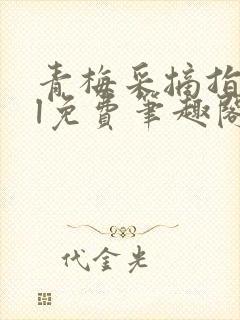 青梅采摘指
1免费笔趣阁
代金光